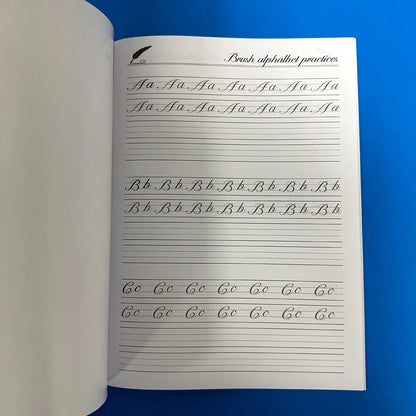 Brush alphalbet practices
Aa Aa Aa Aa Aa Aa Aa
Aa Aa Aa Aa Aa Aa Aa
Bb Bb Bb Bb Bb Bb Bb
Bb Bb Bb Bb Bb Bb Bb
Cc Cc Cc Cc Cc Cc Cc
Cc Cc Cc Cc Cc Cc Cc